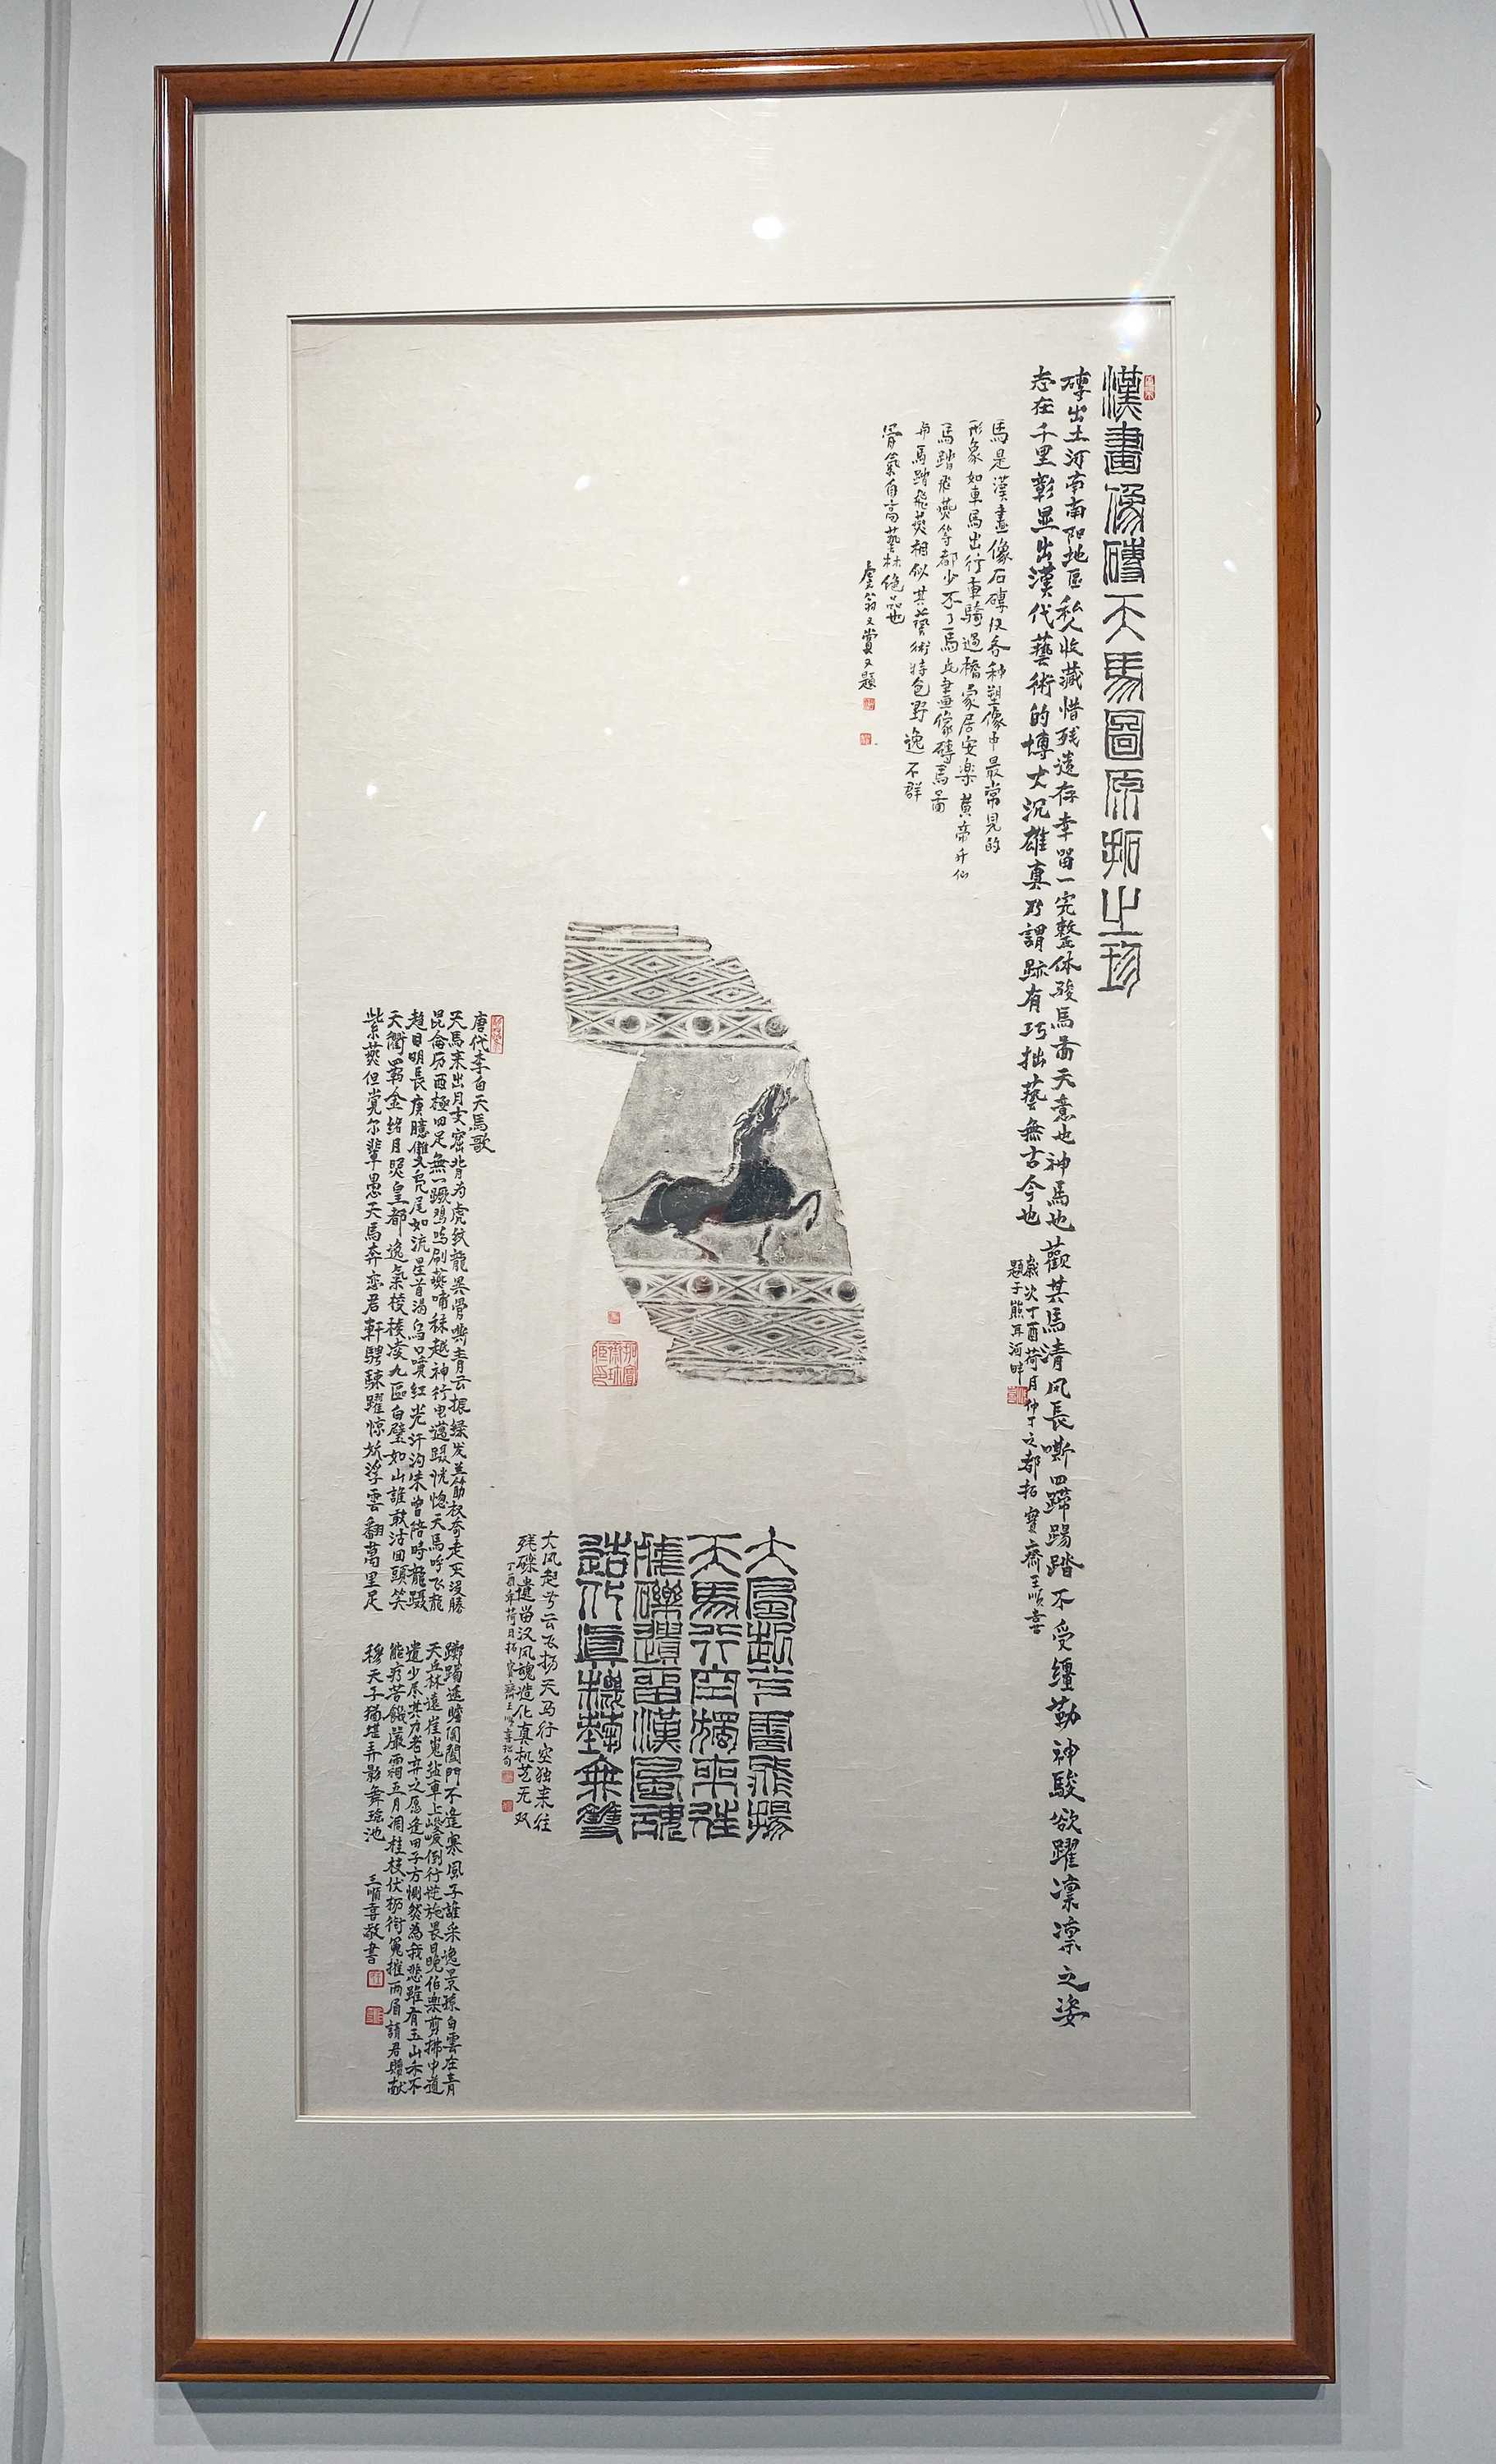 漢畫像磚天馬圖原拓之珍
磚出土河南南阳地區私人收藏惜残遗存幸留一完整体駿馬畵天意也神馬也觀其馬清风長嘶四蹄踢踏不受缰勒神駿欲躍凛凛之姿
志在千里彰显出漢代藝術的博大沉雄真乃謂跡有巧拙藝無古今也
歲次丁酉荷月仲丁之都拓寶齋王順喜
題于熊耳河畔
馬是漢畫像石磚及各种塑像中最常見的
形象如車馬出行車騎過橋家居安樂黄帝升仙
馬踏飛燕等都少不了馬此畫像磚馬畵
与馬踏飛燕相似其藝術特色野逸不群
骨氣自高藝林絶品也
虚翁又賞又題
大風起兮雲飛揚
天馬行空獨來往
残礫遺留漢風魂
造化真機藝無雙
大风起兮云飞扬天马行空独来往
残礫遺留汉风魂造化真机艺无双
丁酉年荷月拓寶齋王順喜拟句
唐代李白天馬歌
天馬来出月支窟背为虎纹龍翼骨嘶青云振绿发兰筋权奇走灭没腾
昆侖历西極四足無一蹶鸡鸣刷燕晡秣越神行电邁蹑恍惚天馬呼飞龍
趋目明長庚臆雙凫尾如流星首渴乌口喷红光汗沟朱曾陪時龍蹑
天衢羁金络月照皇都逸氣稜稜凌九區白璧如山誰敢沽回頭笑
紫燕但觉尔輩愚天馬奔恋君軒駷躍惊矫浮雲翻萬里足
躑躅遥瞻閶闔門不逢寒風子誰采逸景孫白雲在青
天丘林遠崔嵬盐車上峻坂倒行逆施畏日晚伯樂剪拂中道
遺少尽其力老弃之愿逢田子方惻然為我悲雖有玉山禾不
能疗苦飢嚴霜五月凋桂枝伏枥衔冤摧两眉請君贖献
穆天子猶堪弄影舞瑶池
王順喜敬書